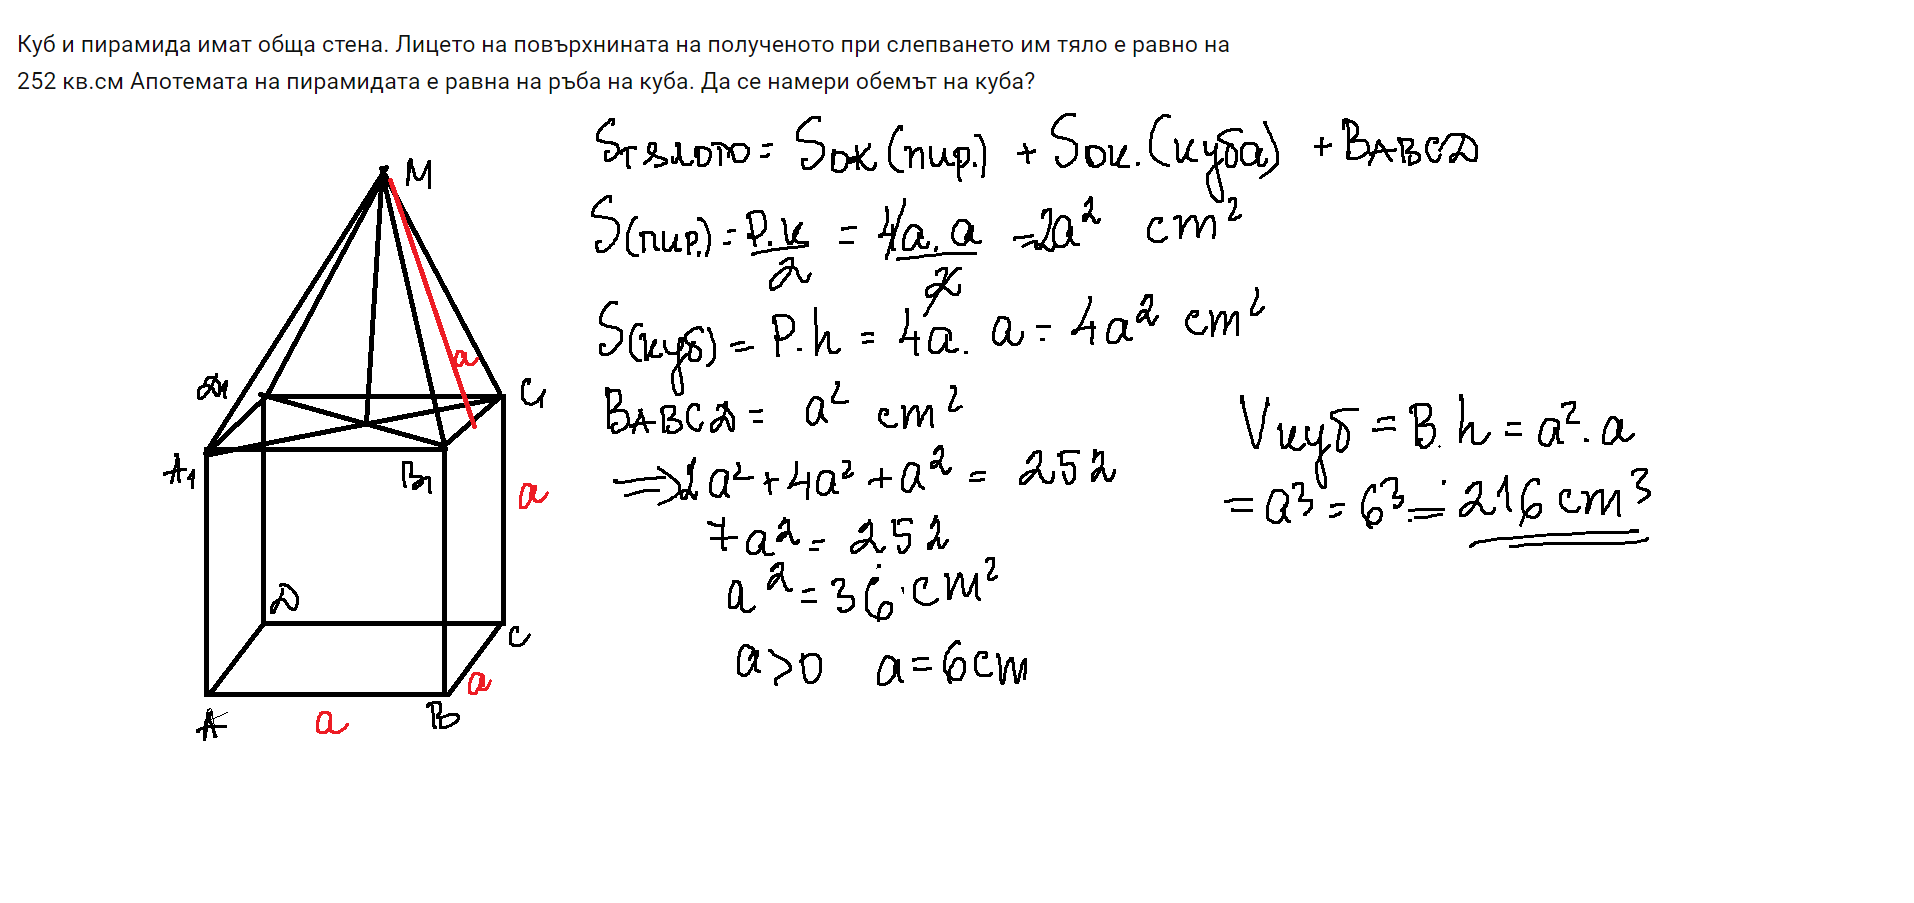 Куб и пирамида имат обща стена. Лицето на повърхнината на полученото при слепването им тяло е равно на
252 кв.см Апотемата на пирамидата е равна на ръба на куба. Да се намери обемът на куба?
Sтялото = Sок(пир.) + Sок.(куба) + BABCD
S(пир.) = P.k/2 = 4a.a/2 = 2a² cm²
S(куб) = P.h = 4a. a = 4a² cm²
BABCD = a² cm²
=> 2a² + 4a² + a² = 252
7a² = 252
a² = 36 cm²
a>0 a = 6cm
Vкуб = B.h = a².a
= a³ = 6³ = 216 cm³
M
a
D1
C1
A1
B1
a
D
C
a
A
a
B